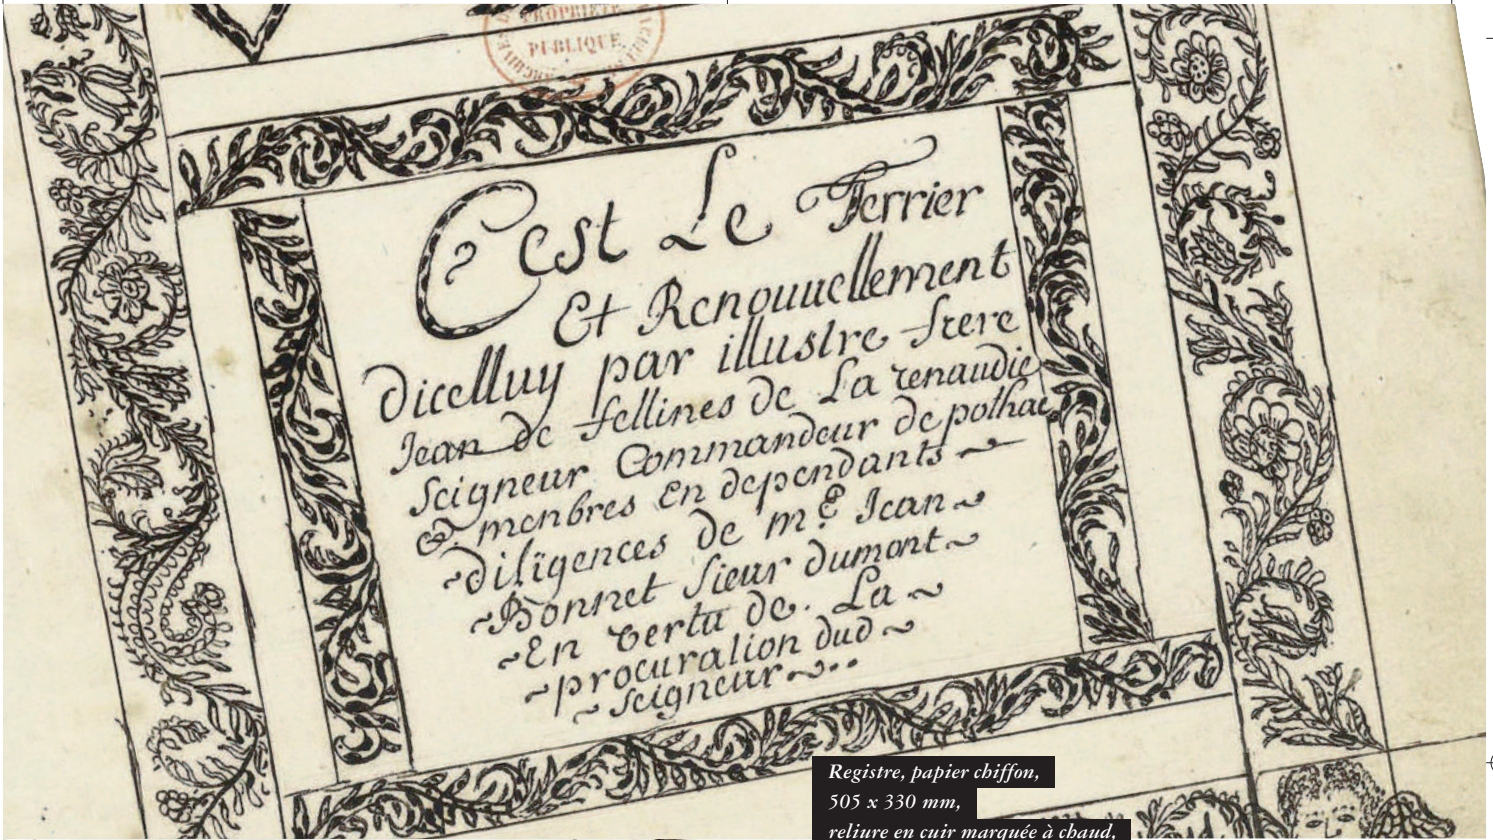 PROPRIÉTÉ
PUBLIQUE
Cest Le Terrier
Et Renouuellement
dicelluy par illustre frere
Jean de fellines de La renaudie
seigneur Commandeur de polhac
& menbres En dependants
diligences de m.e Jean
Bonnet sieur dumont
En vertu de. La
procuration dud
seigneur
Registre, papier chiffon,
505 x 330 mm,
reliure en cuir marquée à chaud,